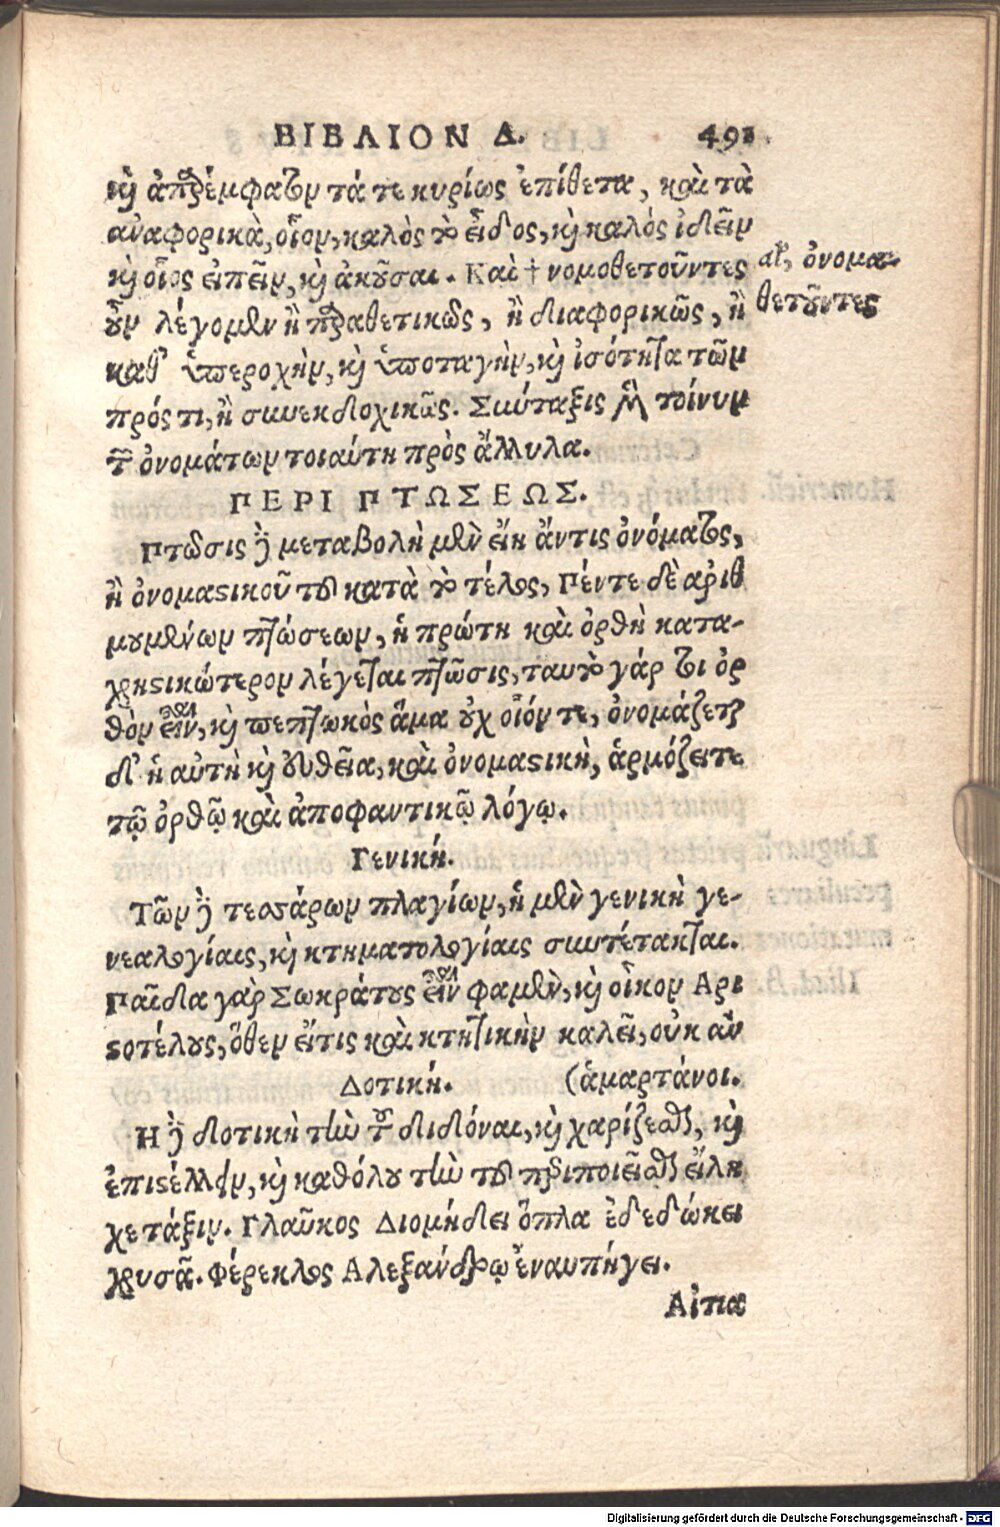 ΒΙΒΛΙΟΝ Δ. 493
καὶ ἀπαρέμφατον τά τε κυρίως ἐπίθετα, καὶ τὰ
ἀναφορικὰ, οἷον, καλὸς τὸ εἶδος, καὶ καλὸς ἰδεῖν
καὶ οἷος εἰπεῖν, καὶ ἀκοῦσαι. Καὶ † νομοθετοῦντες
αλ, ὀνομα-
θετοῦντες
οὖν λέγομεν ἢ παραθετικῶς, ἢ διαφορικῶς, ἢ
καθ' ὑπεροχὴν, καὶ ὑποταγὴν, καὶ ἰσότητα τῶν
πρός τι, ἢ συνεκδοχικῶς. Σύνταξις μὲν τοίνυν
τῶν ὀνομάτων τοιαύτη πρὸς ἄλλυλα.
ΠΕΡΙ ΠΤΩΣΕΩΣ.
Πτῶσις δὲ μεταβολὴ μὲν εἴη ἄντις ὀνόματος,
ἢ ὀνομαστικοῦ του κατὰ τὸ τέλος, Πέντε δὲ ἀριθ
μουμένων πτώσεων, ἡ πρώτη καὶ ὀρθὴ κατα-
χρηστικώτερον λέγεται πτῶσις, ταυτὸ γάρ τοι ὀρ
θὸν εἶναι, καὶ πεπτωκὸς ἅμα οὐχ οἷόν τε, ὀνομάζεται
δ' ἡ αὐτὴ καὶ εὐθεῖα, καὶ ὀνομαστικὴ, ἁρμόζει τε
τῷ ὀρθῷ καὶ ἀποφαντικῷ λόγῳ.
Γενική.
Τῶν δὲ τεσσάρων πλαγίων, ἡ μὲν γενικὴ γε-
νεαλογίαις, καὶ κτηματολογίαις συντέτακται.
Παῖδα γὰρ Σωκράτους εἶναι φαμὲν, καὶ οἶκον Αρι
στοτέλους, ὅθεν εἴτις καὶ κτητικὴν καλεῖ, οὐκ ἂν
Δοτική. (ἁμαρτάνοι.
Η δὲ δοτικὴ τὴν τοῦ διδόναι, καὶ χαρίζεσθαι, καὶ
ἐπιστέλλειν, καὶ καθόλου τὴν τοῦ περιποιεῖσθαι εἴλη
χε τάξιν. Γλαῦκος Διομήδει ὅπλα ἐδεδώκει
χρυσᾶ. Φέρεκλος Αλεξάνδρῳ ἐναυπήγει.
Αἰτια